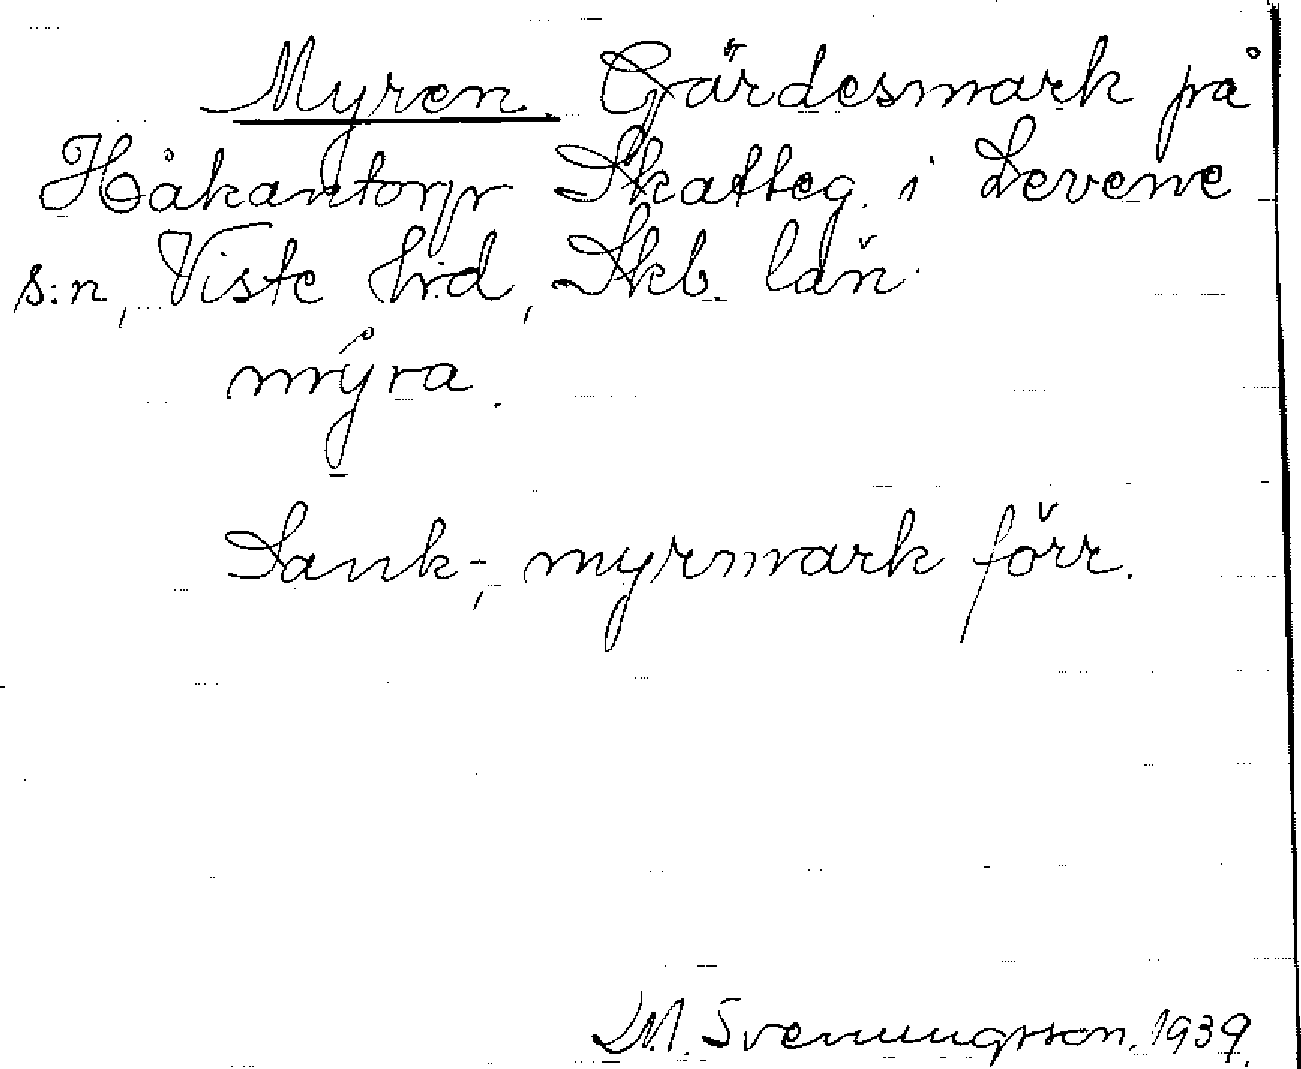 Myren. Gärdesmark på
Håkantorp Skatteg. i Levene
s:n, Viste hrd, Skb. län.
mýra.
Sank-, myrmark förr.
M. Svenungsson. 1939.